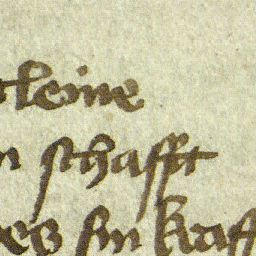 cleine
n schafft
es sin kraff